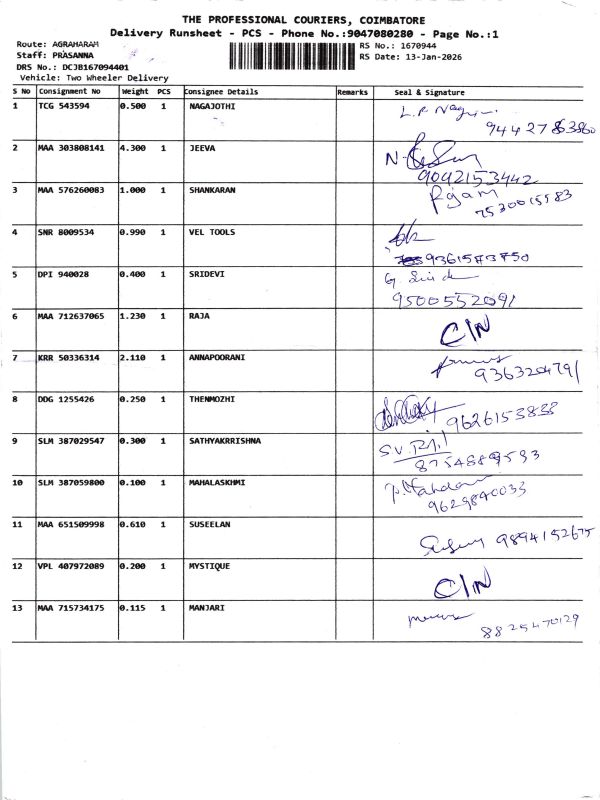 THE PROFESSIONAL COURIERS, COIMBATORE
Delivery Runsheet - PCS - Phone No.:9047080280 - Page No.:1
Route: AGRAHARAM RS No.: 1670944
Staff: PRASANNA RS Date: 13-Jan-2026
DRS No.: DCJB167094401
Vehicle: Two Wheeler Delivery
S No Consignment No Weight PCS Consignee Details Remarks Seal & Signature
1 TCG 543594 0.500 1 NAGAJOTHI
2 MAA 303808141 4.300 1 JEEVA
9092153442
3 MAA 576260083 1.000 1 SHANKARAN
7530015583
4 SNR 8009534 0.990 1 VEL TOOLS
9361573750
5 DPI 940028 0.400 1 SRIDEVI
9500552091
6 MAA 712637065 1.230 1 RAJA C/N
7 KRR 50336314 2.110 1 ANNAPOORANI
9363204791
8 DDG 1255426 0.250 1 THENMOZHI
9626153838
9 SLM 387029547 0.300 1 SATHYAKRRISHNA
10 SLM 387059800 0.100 1 MAHALASKHMI
9629840033
11 MAA 651509998 0.610 1 SUSEELAN
9894152675
12 VPL 407972089 0.200 1 MYSTIQUE C/N
13 MAA 715734175 0.115 1 MANJARI
8825470129